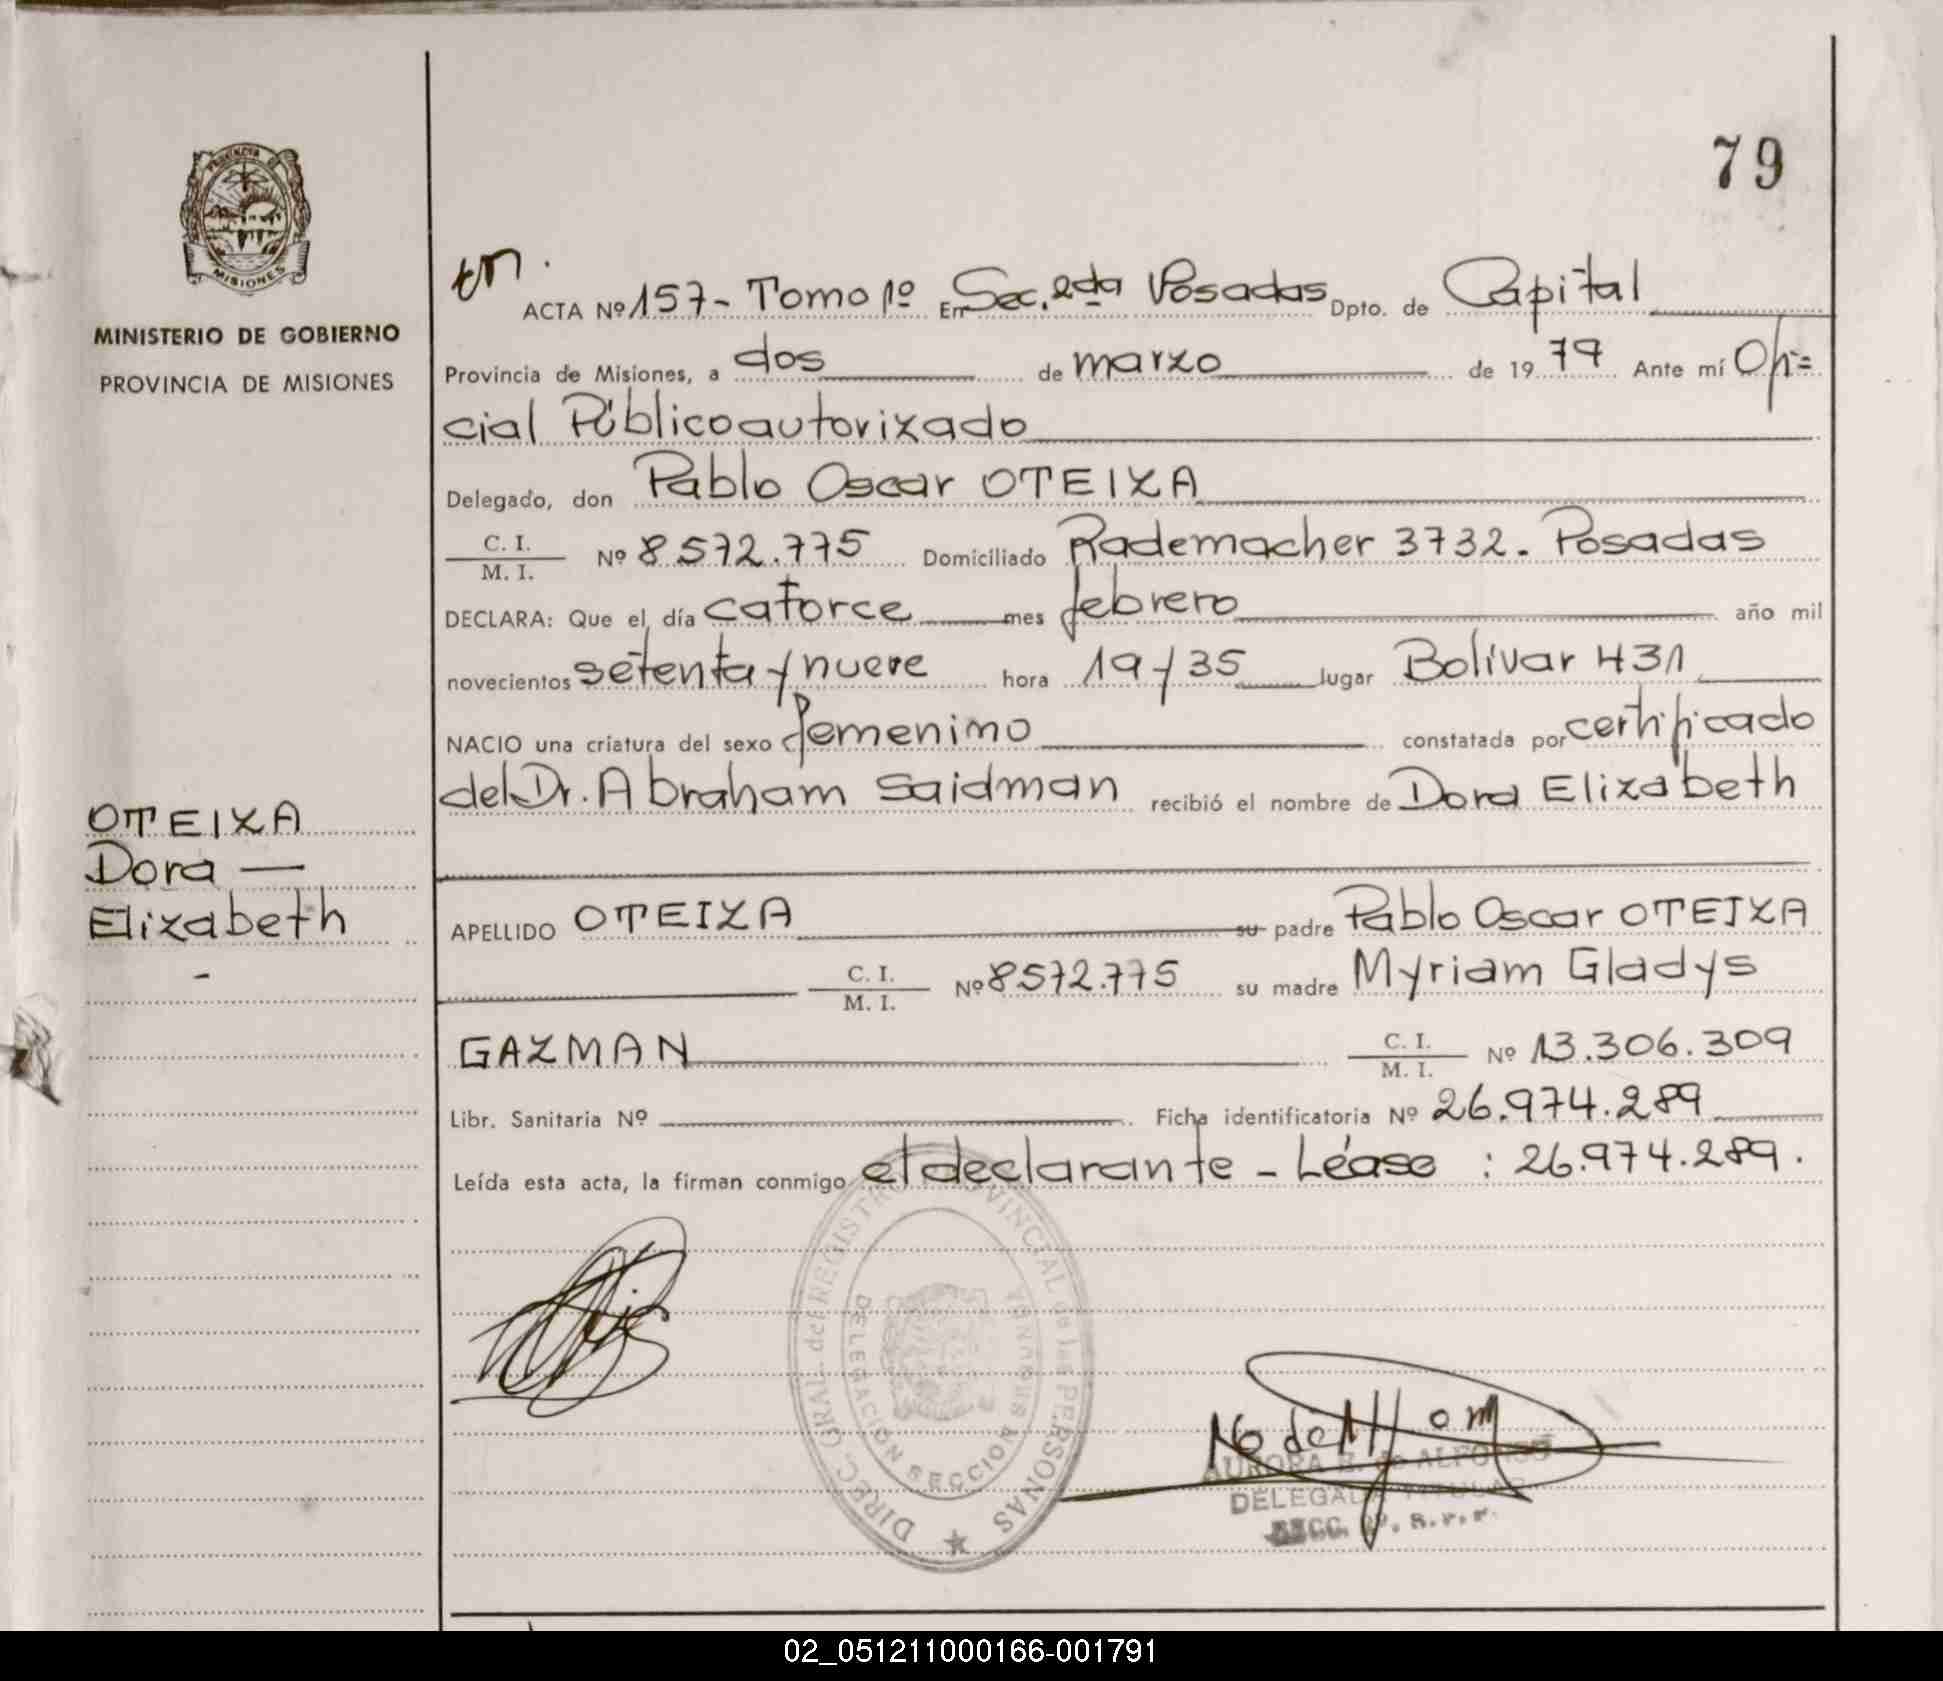 79
MINISTERIO DE GOBIERNO
PROVINCIA DE MISIONES
ACTA Nº 157 - Tomo 1º En Sec. 2da Posadas Dpto. de Capital
Provincia de Misiones, a dos de marzo de 19 79 Ante mí Ofi=
cial Público autorizado
Delegado, don Pablo Oscar OTEIZA
C. I. / M. I. Nº 8572.775 Domiciliado Rademacher 3732. Posadas
DECLARA: Que el día catorce mes febrero año mil
novecientos setenta y nueve hora 19 y 35 lugar Bolívar 431
NACIO una criatura del sexo femenino constatada por certificado
del Dr. Abraham Saidman recibió el nombre de Dora Elizabeth
OTEIZA
Dora —
Elizabeth
-
APELLIDO OTEIZA su padre Pablo Oscar OTEIZA
C. I. / M. I. Nº 8572.775 su madre Myriam Gladys
GAZMAN C. I. / M. I. Nº 13.306.309
Libr. Sanitaria Nº Ficha identificatoria Nº 26.974.289
Leída esta acta, la firman conmigo el declarante - Léase : 26.974.289.
DIREC. GRAL. del REGISTRO PROVINCIAL de las PERSONAS
DELEGACIÓN SECCION SEGUNDA
AURORA E. de ALFONSO
DELEGADA TITULAR
SECC. 2ª. R.P.P.
02_051211000166-001791